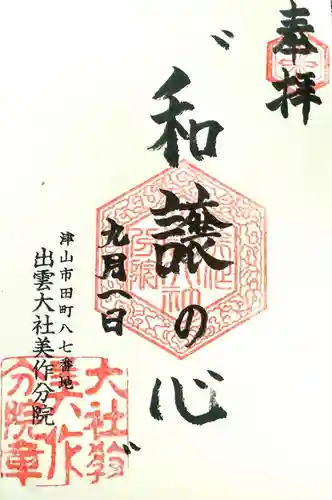 奉拝
〝和譲の心〟
九月一日
津山市田町八七番地
出雲大社美作分院
大社教
美作
分院章